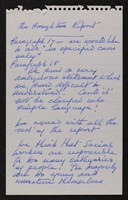 The Houghton Report
Paragraph 17 - we would like
to add "in specified cases
only"
Paragraph 18
We find a very
ambiguous statement which
we find difficult to
understand. Could it
not be clarified with
simpler language?
We agreed with all the
rest of the report
We think that Social
workers are responsible
for too many categories
of people. The majority
are so young and